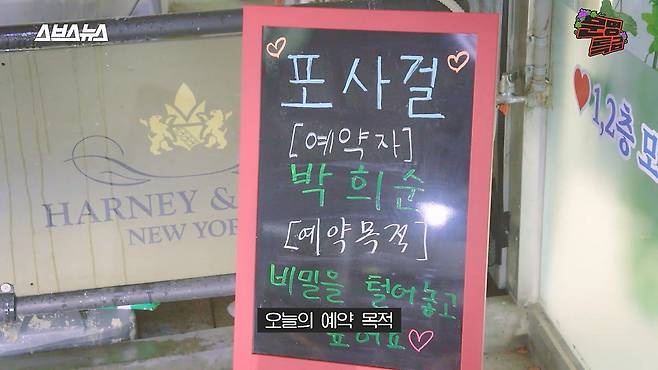 스브스뉴스
포사걸
[예약자]
박희순
[예약목적]
비밀을 털어놓고
싶어요
오늘의 예약 목적
HARNEY &
NEW YOR
1,2층 모